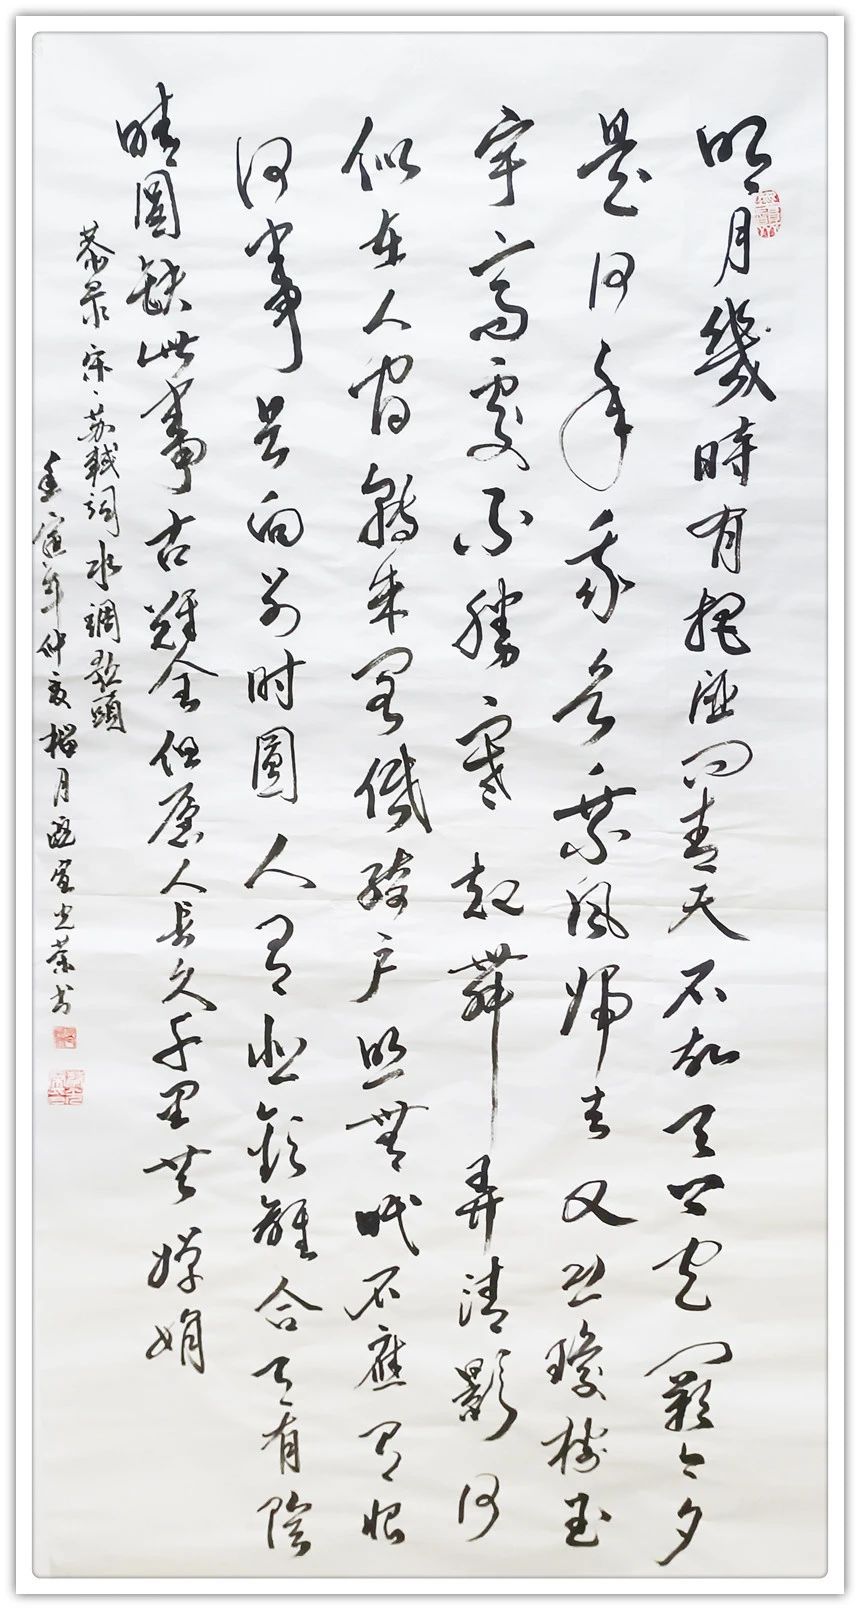 明月幾時有把酒问青天不知天上宫阙今夕
是何年我欲乘風歸去又恐瓊樓玉
宇高處不勝寒起舞弄清影何
似在人间轉朱阁低绮户照無眠不應有恨
何事长向别时圓人有悲歡離合月有陰
晴圓缺此事古難全但愿人长久千里共嬋娟
恭录宋、苏軾词水調歌頭
壬寅年仲夏榴月光荣书